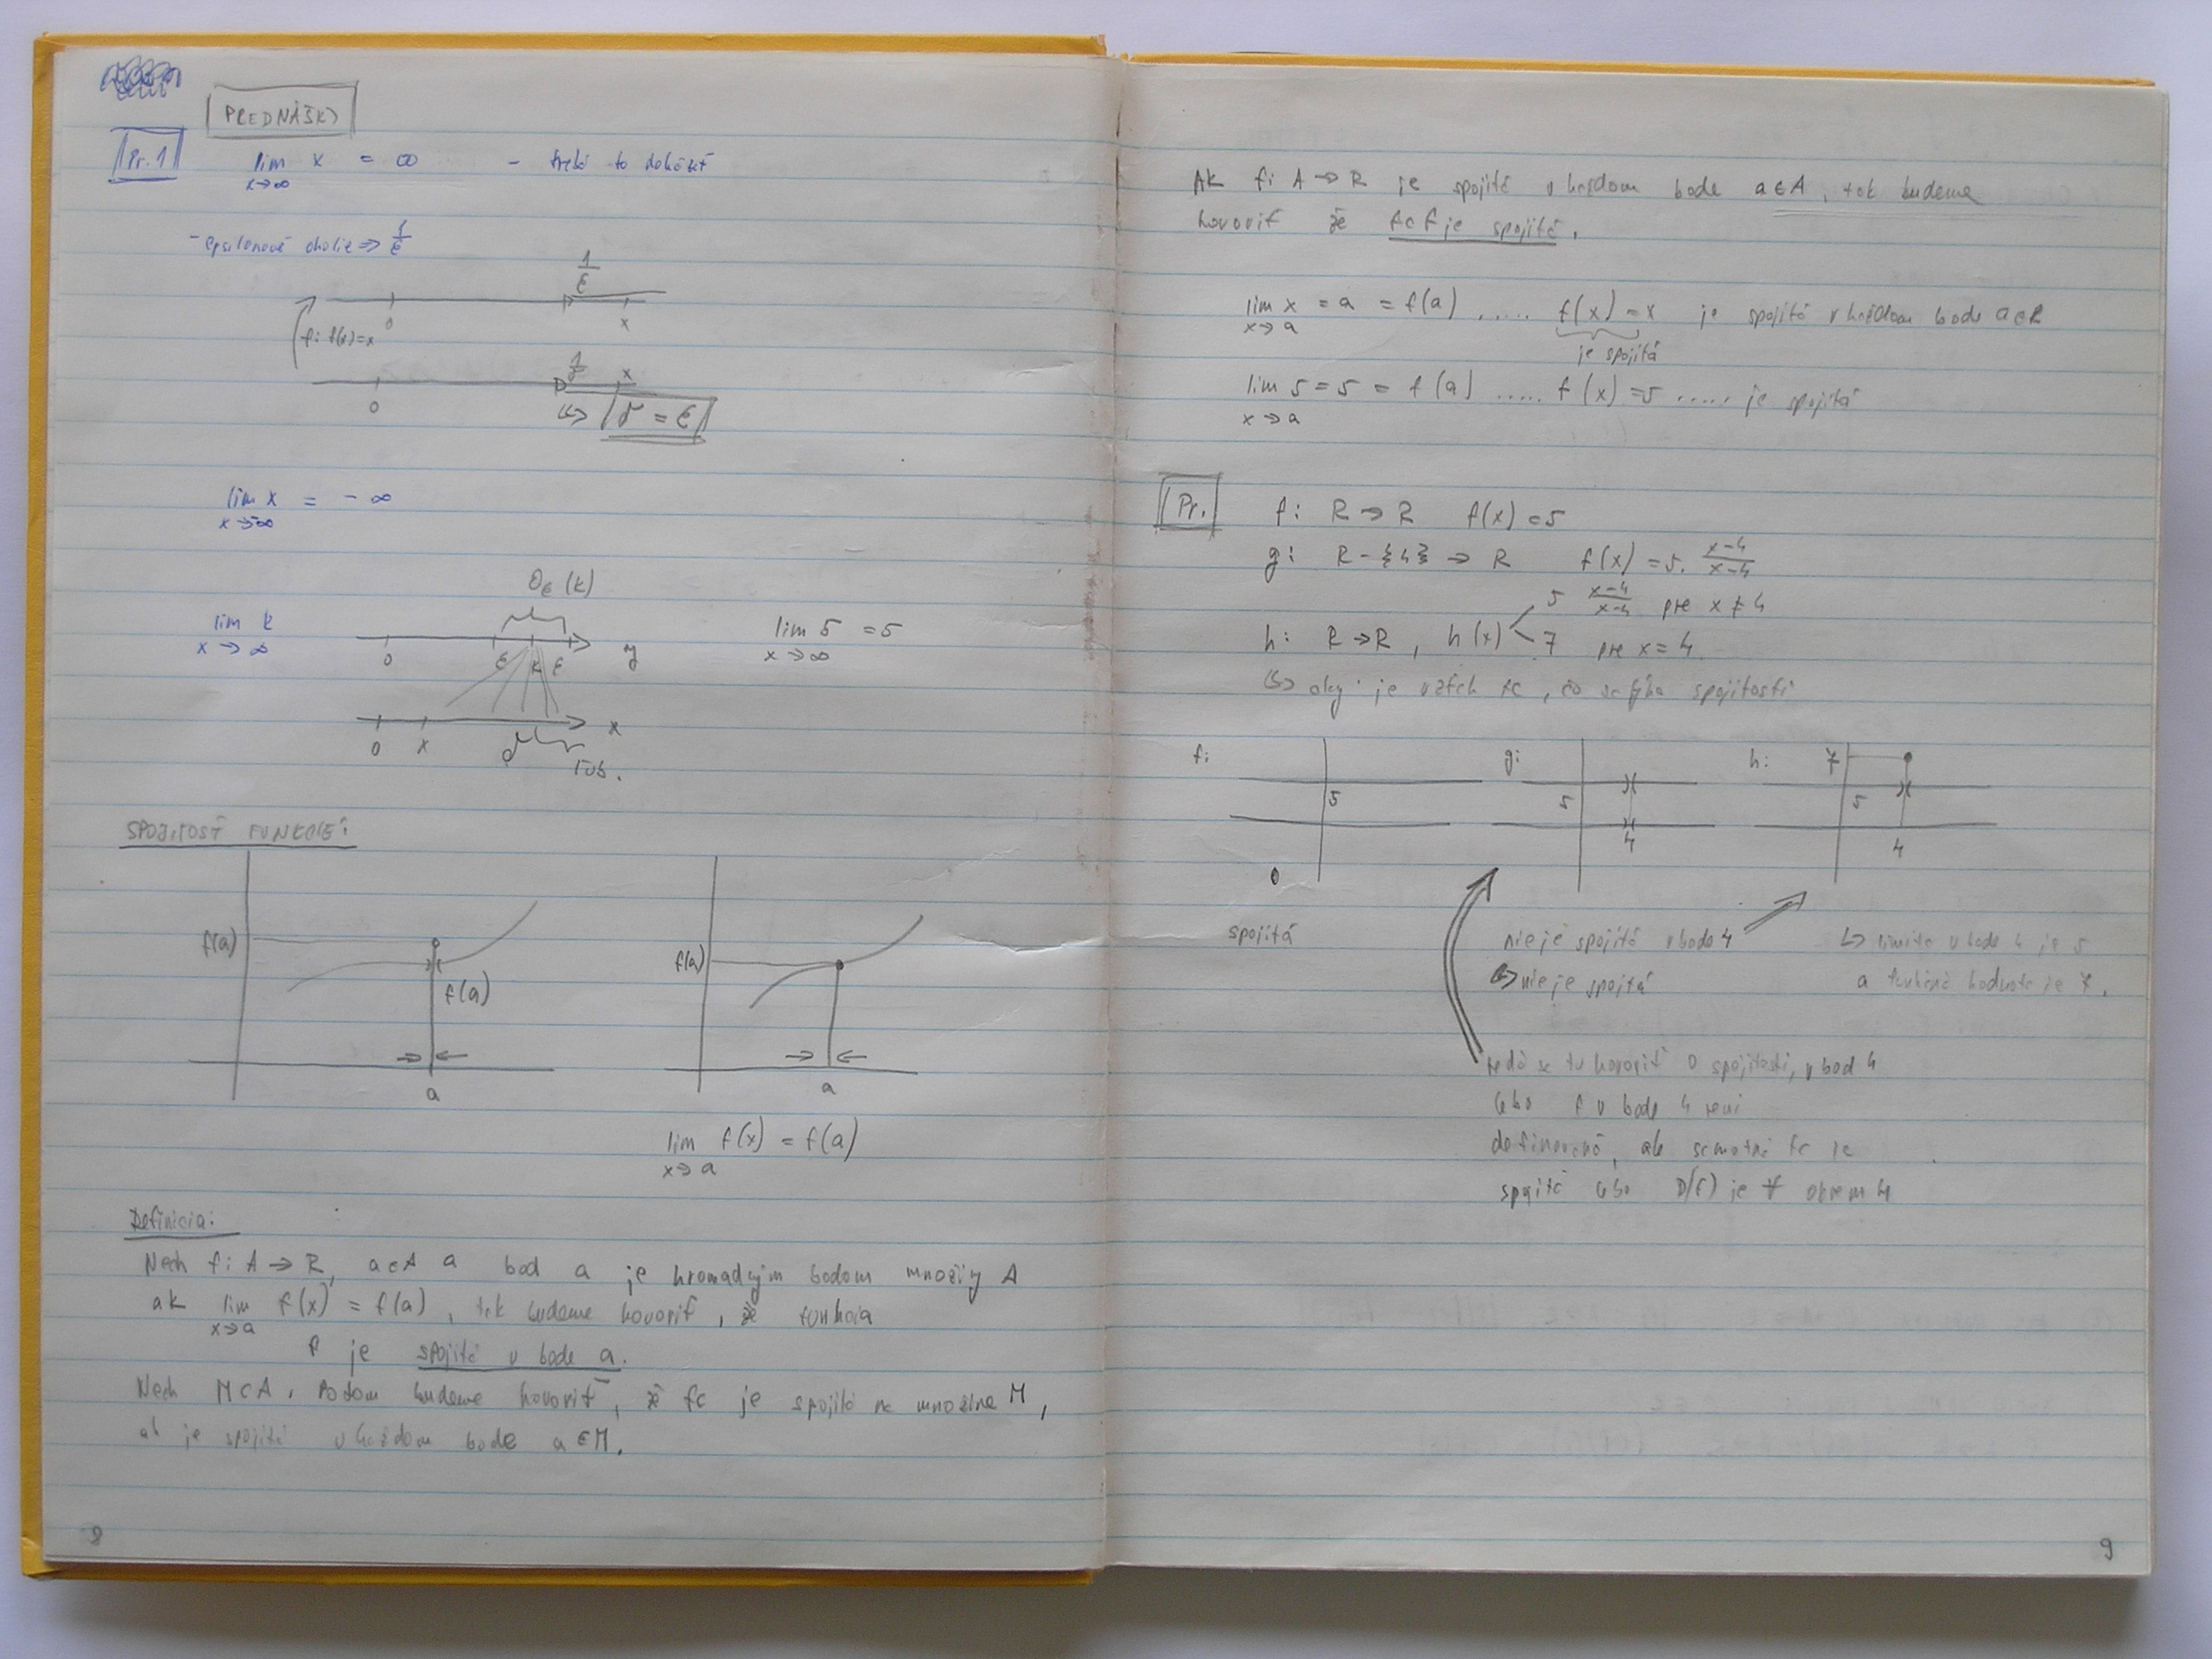 PREDNÁŠKY
Pr. 1
lim x = ∞ - treba to dokázať
x→∞
- epsilonové okolie ⇒ 1/ε
1/ε
0 x
f: f(x)=x
1/δ x
0
↳ δ = ε
lim x = -∞
x→-∞
O_ε (k)
lim k
x→∞
0 ε k ε y
lim 5 = 5
x→∞
0 x δ x
ľub.
SPOJITOSŤ FUNKCIE:
f(a)
f(a)
a
f(a)
a
lim f(x) = f(a)
x→a
Definícia:
Nech f: A → R, a∈A a bod a je hromadným bodom množiny A
ak lim f(x) = f(a), tak budeme hovoriť, že funkcia
x→a
f je spojitá v bode a.
Nech M⊂A. Potom budeme hovoriť, že fc je spojitá na množine M,
ak je spojitá v každom bode a∈M.
8
Ak f: A → R je spojitá v každom bode a∈A, tak budeme
hovoriť že fc f je spojitá.
lim x = a = f(a) ..... f(x) = x je spojitá v každom bode a∈R
x→a
je spojitá
lim 5 = 5 = f(a) ..... f(x) = 5 ..... je spojitá
x→a
Pr.
f: R → R f(x) = 5
g: R - {4} → R f(x) = 5. x-4/x-4
5 x-4/x-4 pre x ≠ 4
h: R → R, h(x)
7 pre x = 4
↳ aký je vzťah fc, čo sa týka spojitosti
f: 5
0
g: 5 4
h: 7 5 4
spojitá
nie je spojitá v bode 4
↳ nie je spojitá
↳ limita v bode 4 je 5
a funkčná hodnota je 7.
sa tu hovoriť o spojitosti, v bod 4
lebo f v bode 4 neni
definovaná, ale samotná fc je
spojitá lebo D(f) je ∀ okrem 4
9